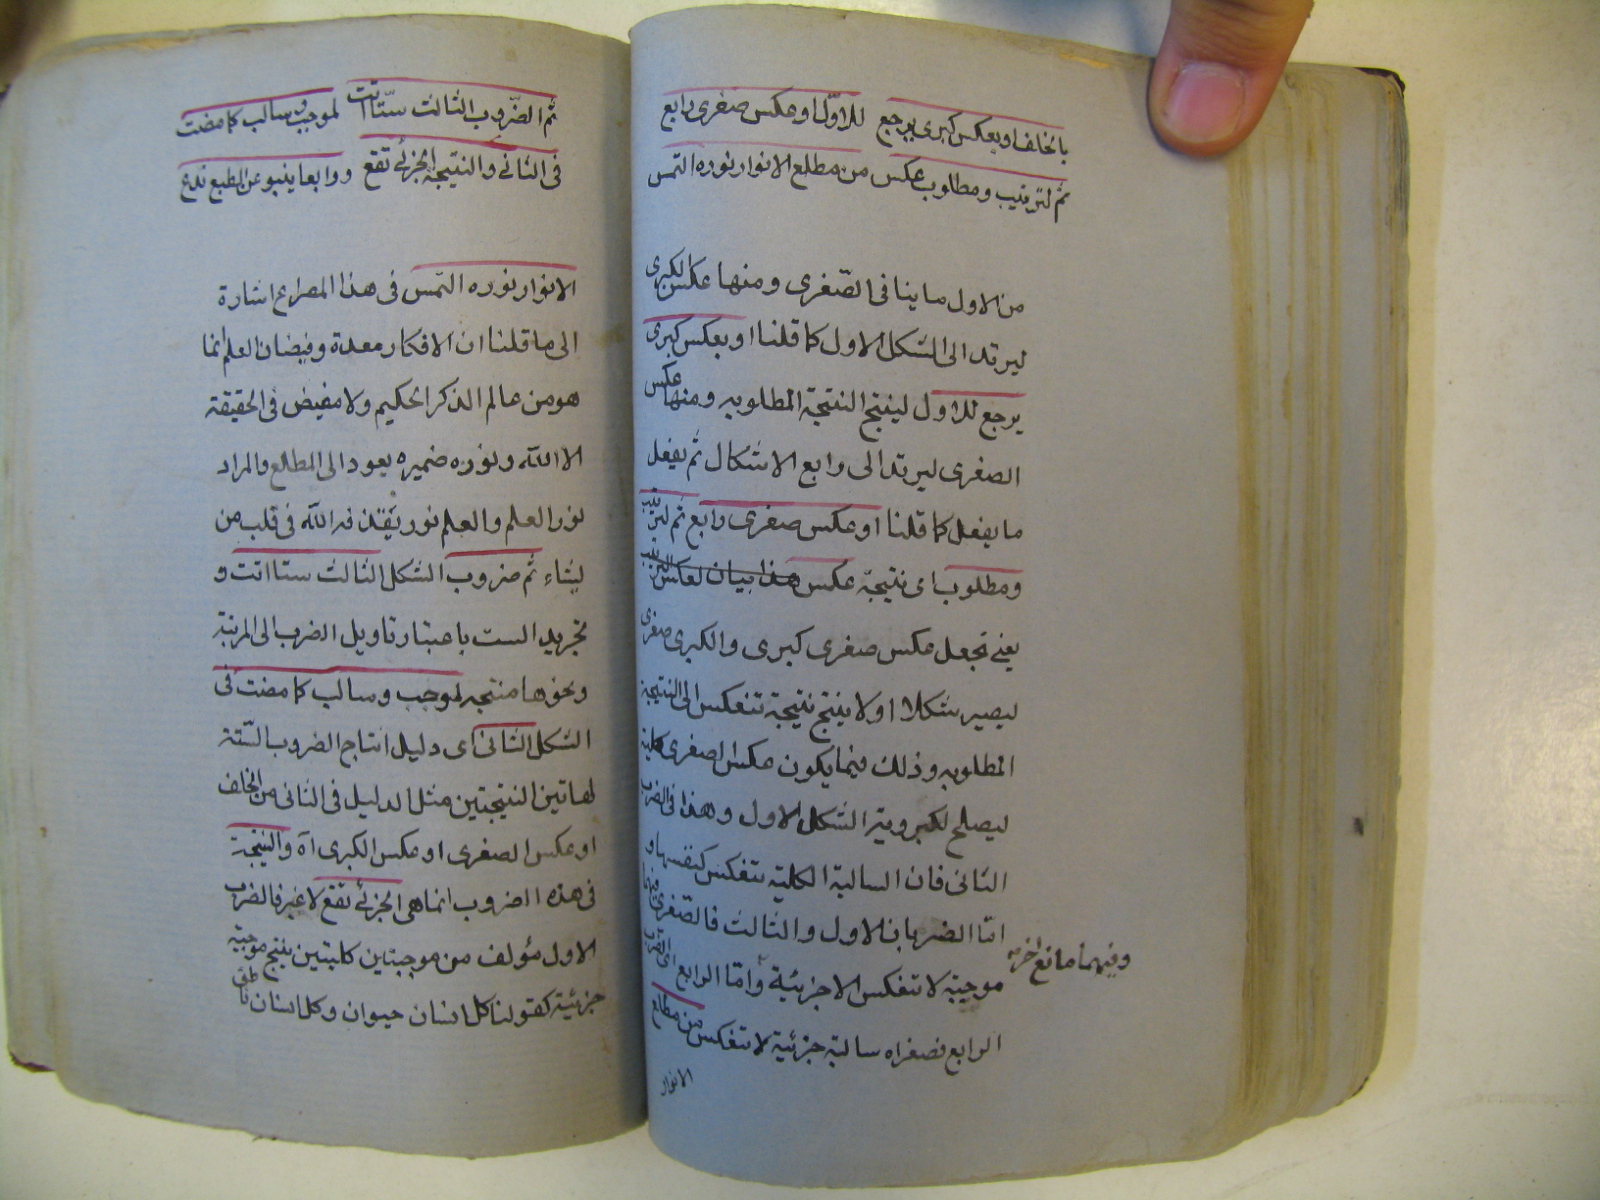 بالخلف او بعكس كبرى يرجع للاوّل او عكس صغرى رابع
ثم لترتيب ومطلوب عكس من مطلع الانوار نوره التمس
من الاول ما ينافى الصّغرى ومنها عكس الكبرى
ليرتد الى الشكل الاول كما قلنا او بعكس كبرى
يرجع للاول لينتج النتيجة المطلوبه ومنها عكس
الصغرى ليرتد الى رابع الاشكال ثم يفعل
ما يفعل كما قلنا او عكس صغرى رابع ثم لترتيب
ومطلوب اى نتيجة عكس هذا بيان لعكس الترتيب
يعنى تجعل عكس صغرى كبرى والكبرى صغرى
ليصير شكلا اولا ينتج نتيجة تنعكس الى النتيجة
المطلوبه وذلك فيما يكون عكس الصغرى كلية
ليصلح لكبرويه الشكل الاول وهذا فى الضرب
الثانى فان السالبة الكلية تنعكس كنفسها و
امّا الضربان الاول والثالث فالصّغرى فيهما
موجبة لا تنعكس الا جزئية وامّا الرابع
وفيهما مانع اخر
الرابع فصغراه سالبة جزئية لا تنعكس من مطلع
الانوار
ثم الضّروب الثالث ستّا اتت لموجب وسالب كما مضت
فى الثانى والنتيجة الجزئى تقع ورابعا ينبو عن الطبع تدع
الانوار نوره التمس فى هذا المصراع اشارة
الى ما قلنا ان الافكار معدة وفيضان العلم انما
هو من عالم الذكر الحكيم ولا مفيض فى الحقيقة
الا الله ونوره ضميره يعود الى المطلع والمراد
نور العلم والعلم نور يقذفه الله فى قلب من
يشاء ثم ضروب الشكل الثالث ستا اتت و
تجريد الست باعتبار تاويل الضرب الى المرتبة
ونحوها منتجه لموجب وسالب كما مضت فى
الشكل الثانى اى دليل انتاج الضروب الستة
لهاتين النتيجتين مثل الدليل فى الثانى من الخلف
او عكس الصغرى او عكس الكبرى آه والنتيجة
فى هذه الضروب انما هى الجزئى تقع لا غير فالضرب
الاول مؤلف من موجبتين كليتين ينتج موجبة
جزئية كقولنا كل انسان حيوان وكل انسان ناطق